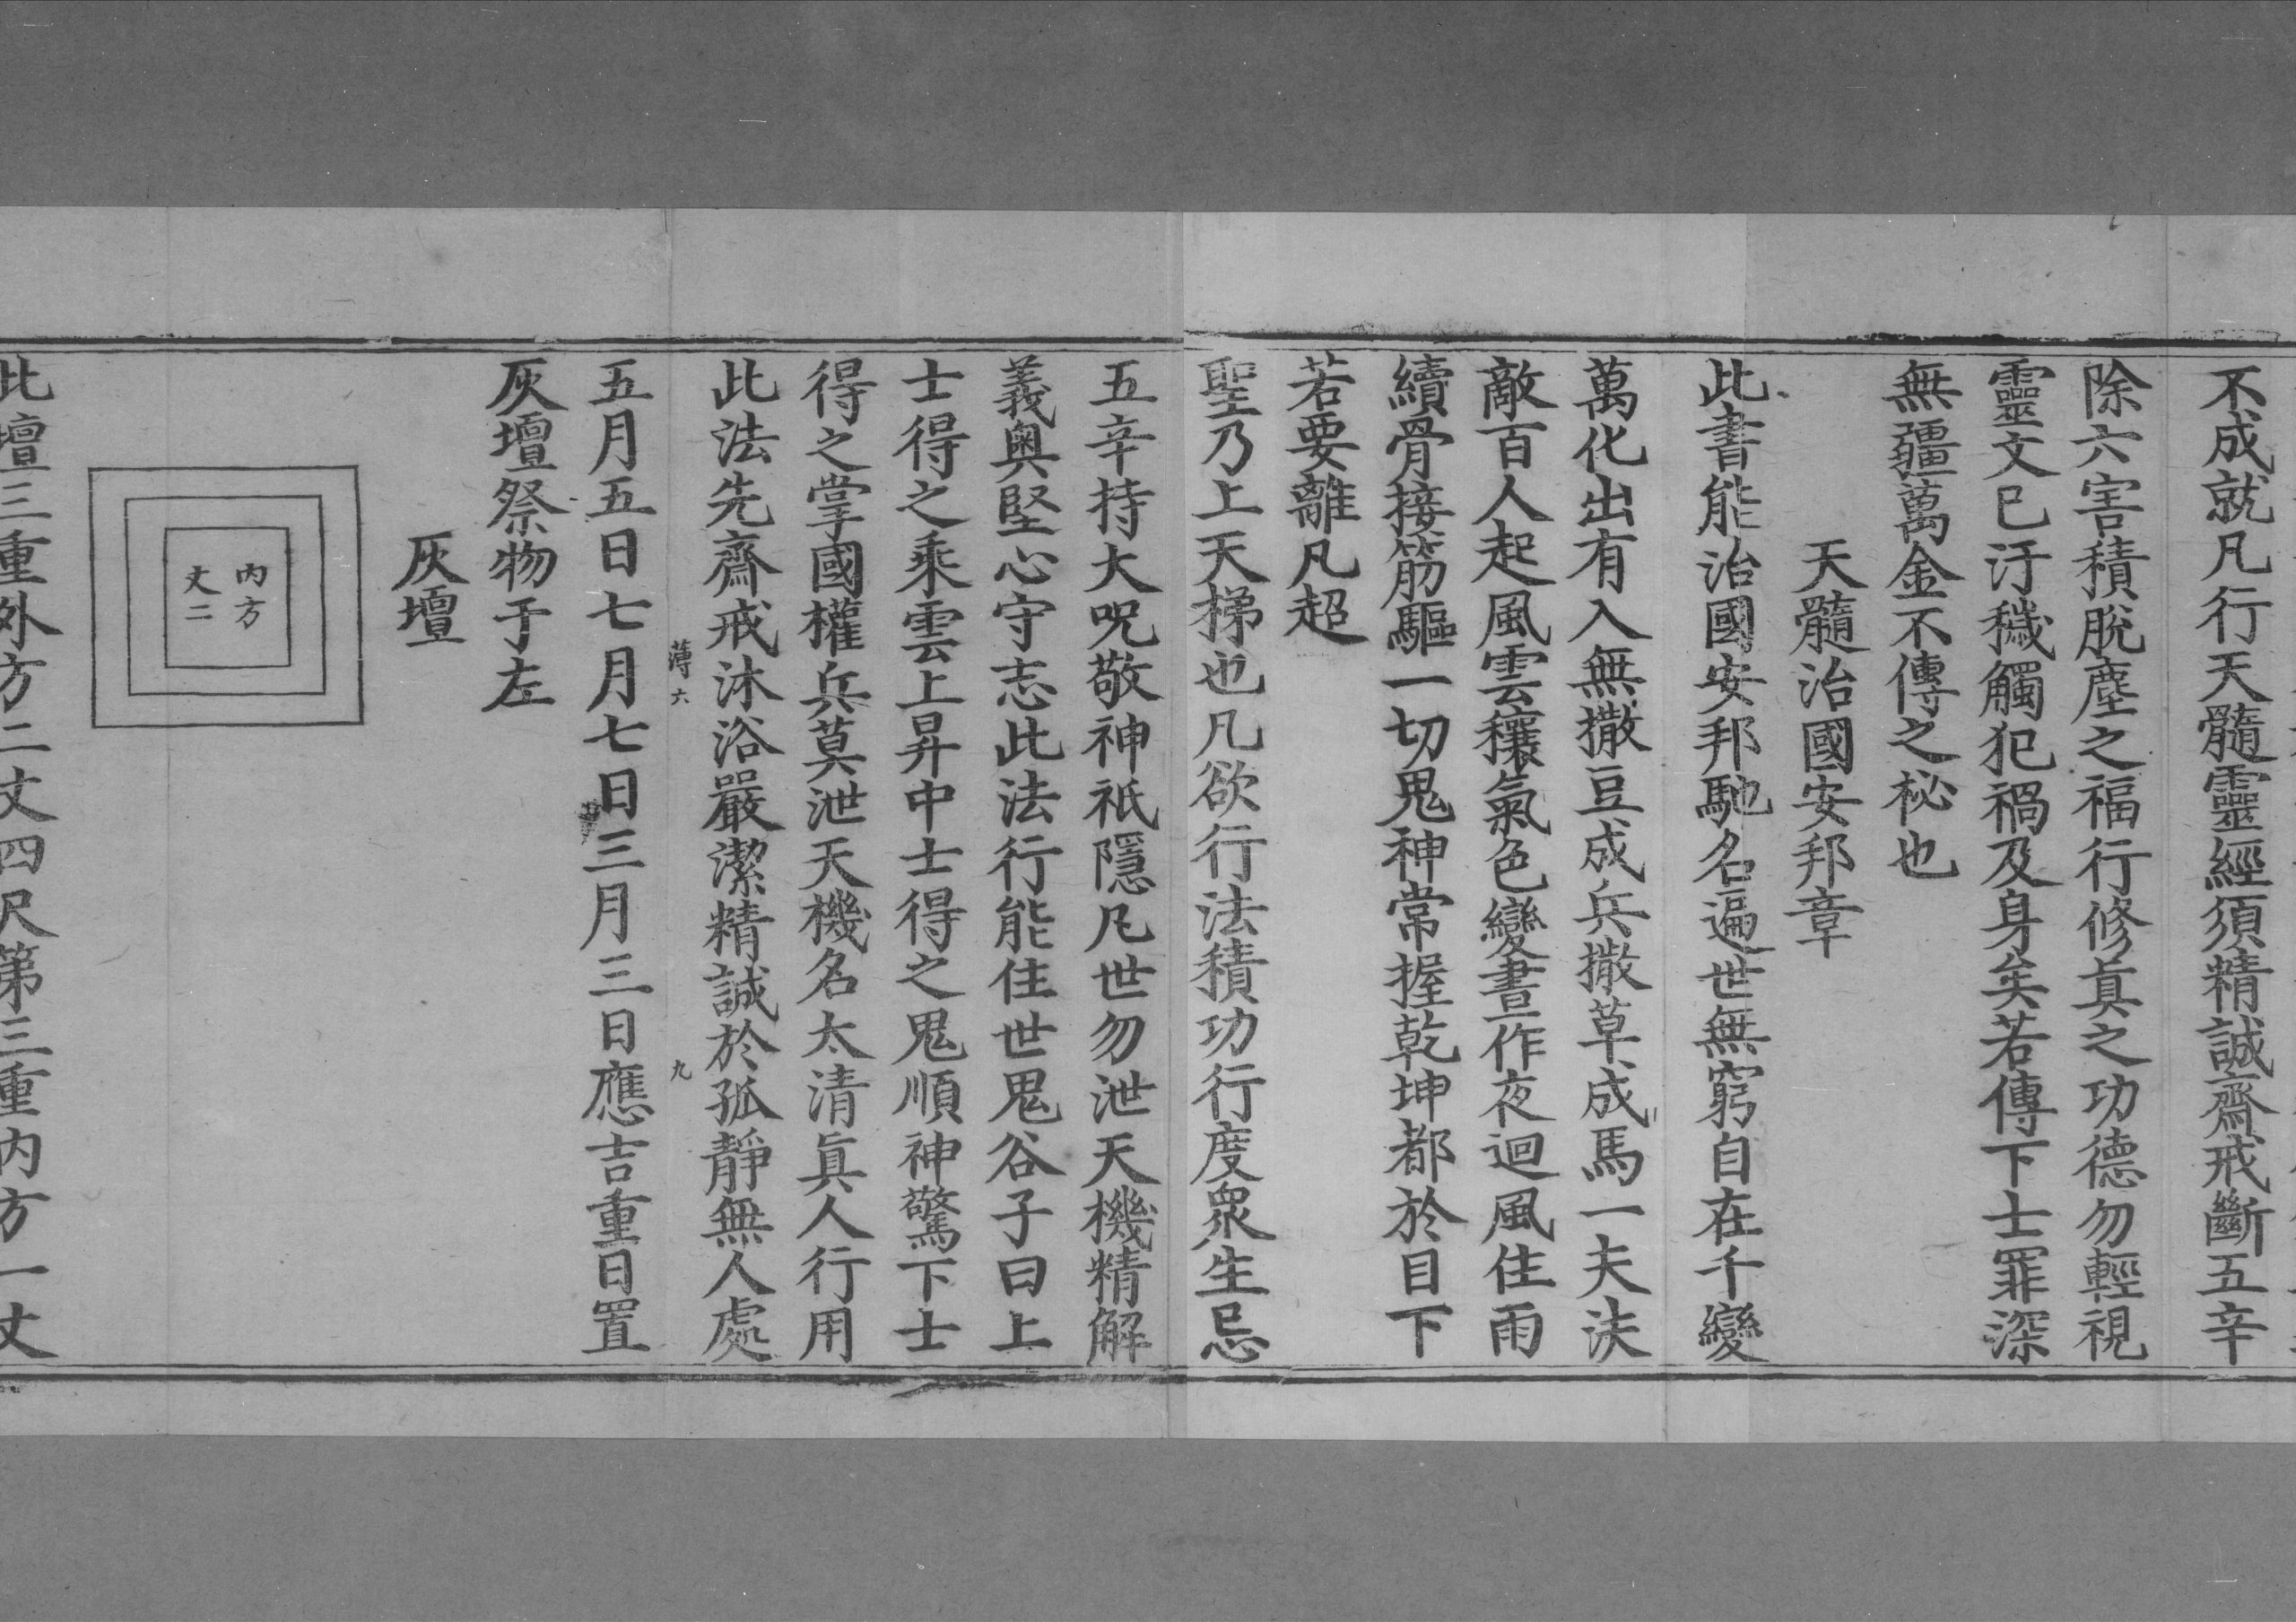 不成就凡行天髓靈經須精誠齋戒斷五辛
除六害積脫塵之福行修眞之功德勿輕視
靈文已汙穢觸犯禍及身矣若傳下士罪深
無疆萬金不傳之祕也
天髓治國安邦章
此書能治國安邦馳名遍世無窮自在千變
萬化出有入無撒豆成兵撒草成馬一夫法
敵百人起風雲穰氣色變晝作夜迴風住雨
續骨接筋驅一切鬼神常握乾坤都於目下
若要離凡超
聖乃上天梯也凡欲行法積功行度衆生忌
五辛持大呪敬神祇隱凡世勿泄天機精解
義奥堅心守志此法行能住世鬼谷子曰上
士得之乘雲上昇中士得之鬼順神驚下士
得之掌國權兵莫泄天機名太清眞人行用
此法先齋戒沐浴嚴潔精誠於孤靜無人處
薄六 九
五月五日七月七日三月三日應吉重日置
灰壇祭物于左
灰壇
内方
丈二
此壇三重外方二丈四尺第三重内方一丈